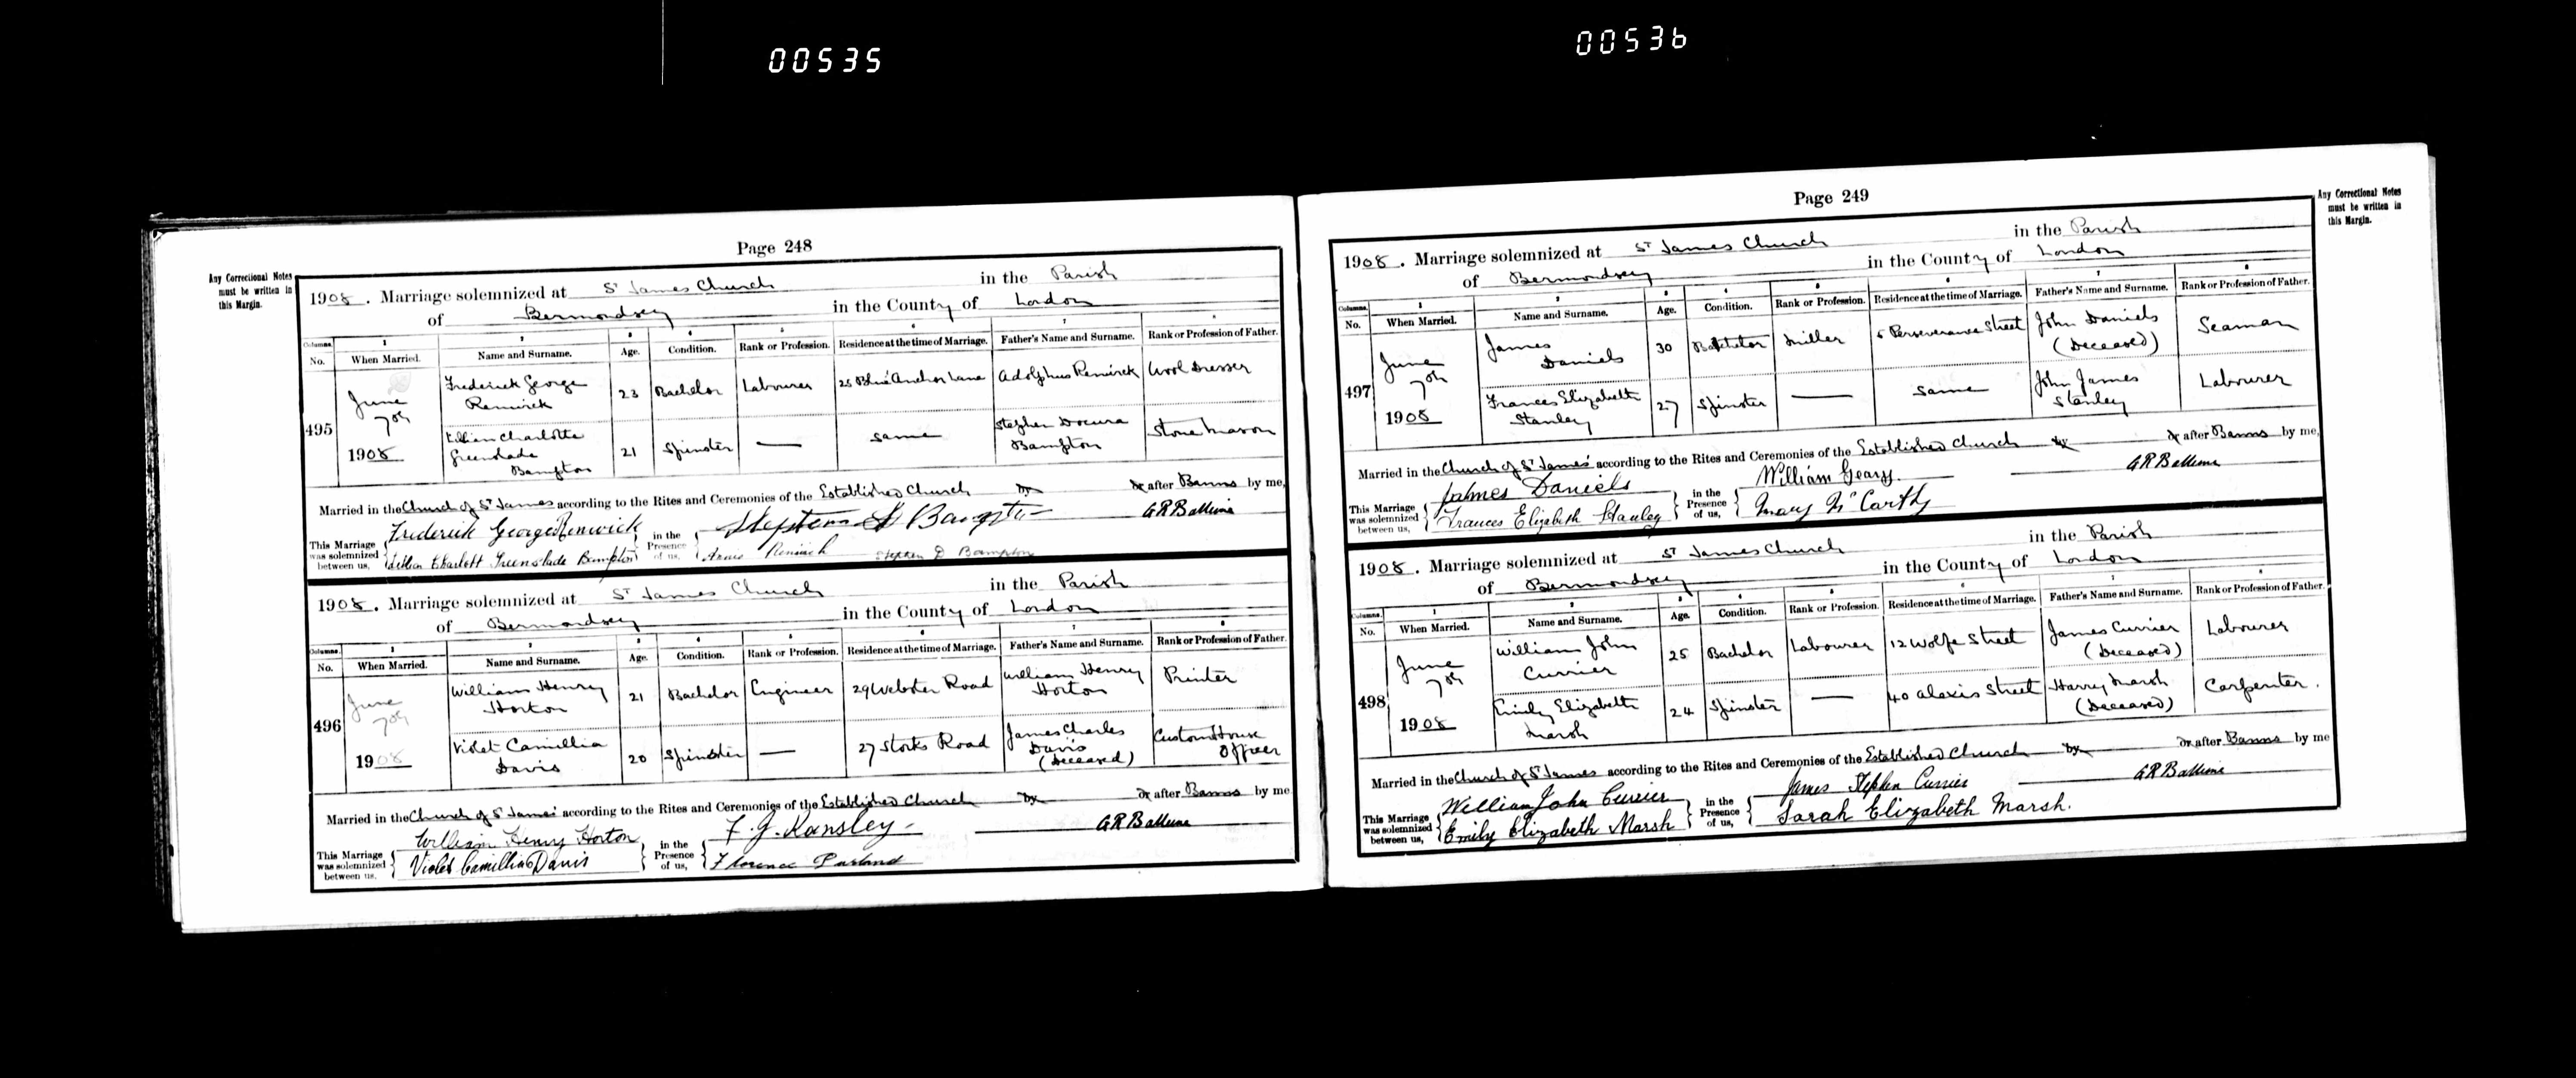 00535
00536
Page 248
Any Correctional Notes
must be written in
this Margin.
1908. Marriage solemnized at St James Church in the Parish
of Bermondsey in the County of London
Columns. 1 2 3 4 5 6 7 8
No. When Married. Name and Surname. Age. Condition. Rank or Profession. Residence at the time of Marriage. Father's Name and Surname. Rank or Profession of Father.
495 June 7th 1908
Frederick George Renwick 23 Bachelor Labourer 25 Blue Anchor Lane Adolphus Renwick Wool Dresser
Lillian Charlotte Greenslade Bampton 21 Spinster — same Stephen Docura Bampton Stone Mason
Married in the Church of St James according to the Rites and Ceremonies of the Established Church by or after Banns by me,
This Marriage was solemnized between us, Frederick George Renwick
Lillian Charlott Greenslade Bampton
in the Presence of us, Stephen Bampton
Renwick Stephen D Bampton
G R Balleine
1908. Marriage solemnized at St James Church in the Parish
of Bermondsey in the County of London
Columns. 1 2 3 4 5 6 7 8
No. When Married. Name and Surname. Age. Condition. Rank or Profession. Residence at the time of Marriage. Father's Name and Surname. Rank or Profession of Father.
496 June 7th 1908
William Henry Horton 21 Bachelor Engineer 29 Webster Road William Henry Horton Printer
Violet Camillia Davis 20 Spinster — 27 Storks Road James Charles Davis (Deceased) Custom House Officer
Married in the Church of St James according to the Rites and Ceremonies of the Established Church by or after Banns by me
This Marriage was solemnized between us, William Henry Horton
Violet Camillia Davis
in the Presence of us, F. J. Kansley
Florence Parland
G R Balleine
Page 249
Any Correctional Notes
must be written in
this Margin.
1908. Marriage solemnized at St James Church in the Parish
of Bermondsey in the County of London
Columns. 1 2 3 4 5 6 7 8
No. When Married. Name and Surname. Age. Condition. Rank or Profession. Residence at the time of Marriage. Father's Name and Surname. Rank or Profession of Father.
497 June 7th 1908
James Daniels 30 Bachelor Miller 5 Perseverance Street John Daniels (Deceased) Seaman
Frances Elizabeth Stanley 27 Spinster — same John James Stanley Labourer
Married in the Church of St James according to the Rites and Ceremonies of the Established Church by or after Banns by me,
This Marriage was solemnized between us, James Daniels
Frances Elizabeth Stanley
in the Presence of us, William Geary.
Mary McCarthy
G R Balleine
1908. Marriage solemnized at St James Church in the Parish
of Bermondsey in the County of London
Columns. 1 2 3 4 5 6 7 8
No. When Married. Name and Surname. Age. Condition. Rank or Profession. Residence at the time of Marriage. Father's Name and Surname. Rank or Profession of Father.
498 June 7th 1908
William John Currier 25 Bachelor Labourer 12 Wolfe Street James Currier (Deceased) Labourer
Emily Elizabeth Marsh 24 Spinster — 40 Alexis Street Harry Marsh (Deceased) Carpenter.
Married in the Church of St James according to the Rites and Ceremonies of the Established Church by or after Banns by me
This Marriage was solemnized between us, William John Currier
Emily Elizabeth Marsh
in the Presence of us, James Stephen Currier
Sarah Elizabeth Marsh.
G R Balleine